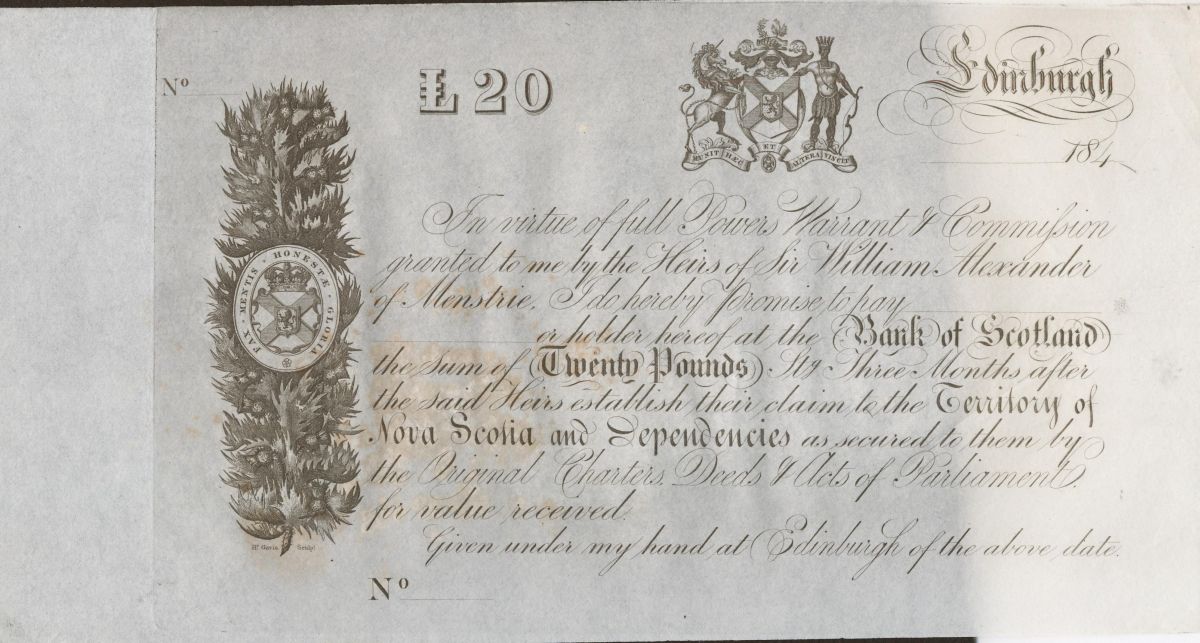 Nº
£20
MUNIT HÆC ET ALTERA VINCIT
Edinburgh
184
In virtue of full Powers Warrant & Commission
granted to me by the Heirs of Sir William Alexander
of Menstrie, I do hereby Promise to pay
or holder hereof at the Bank of Scotland
the Sum of Twenty Pounds Stg Three Months after
the said Heirs establish their claim to the Territory of
Nova Scotia and Dependencies as secured to them by
the Original Charters, Deeds & Acts of Parliament,
for value received.
Given under my hand at Edinburgh of the above date.
PAX · MENTIS · HONESTÆ · GLORIA
Hy. Gavin Sculpt
Nº